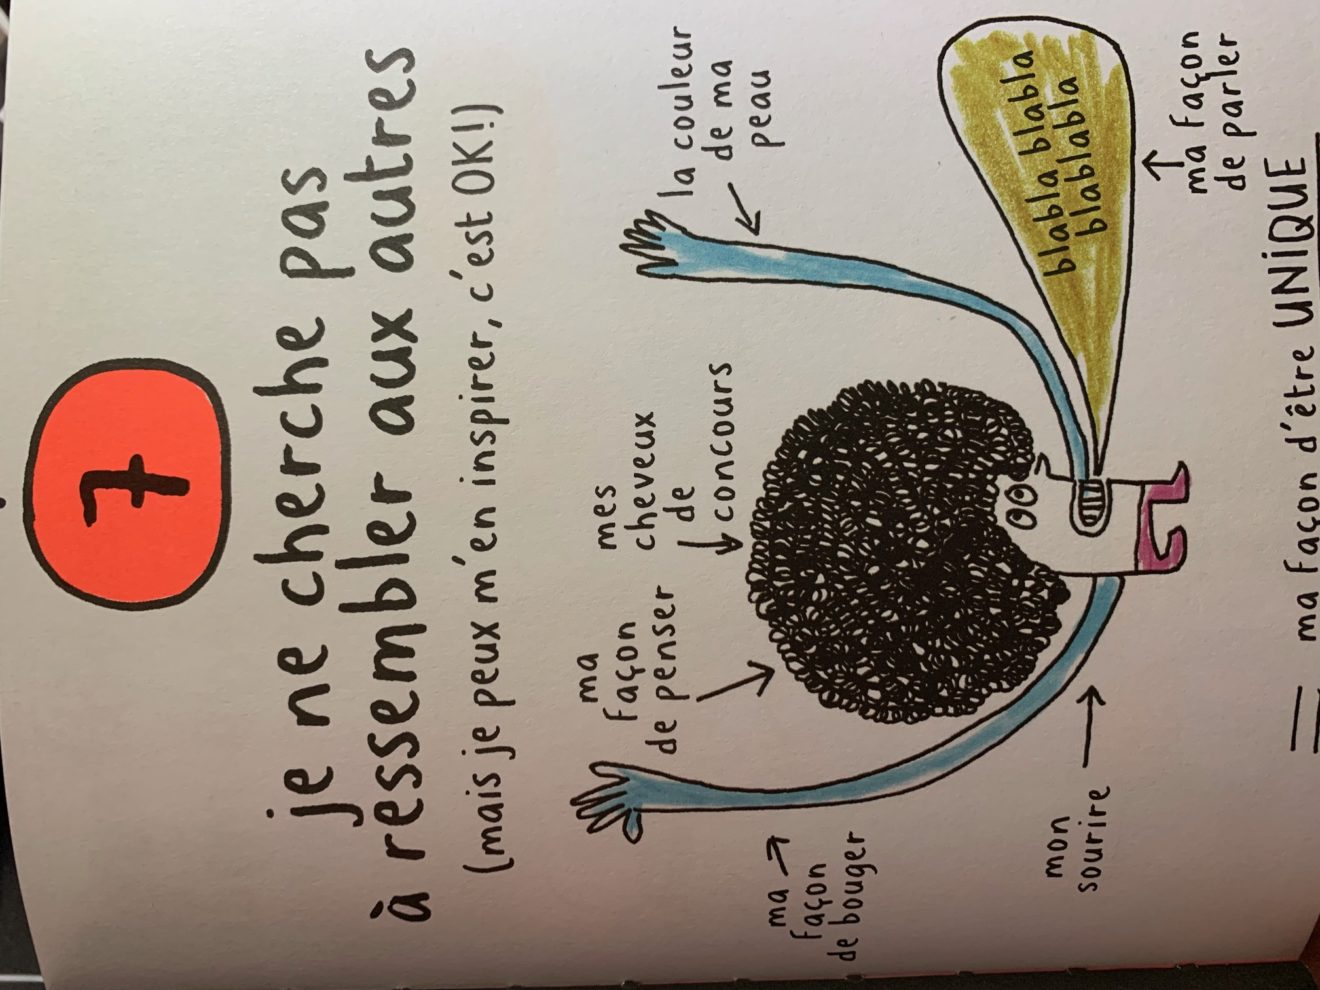 7
je ne cherche pas
à ressembler aux autres
(mais je peux m'en inspirer, c'est OK!)
ma
façon
de penser
mes
cheveux
de
concours
la couleur
de ma
peau
ma
façon
de bouger
blabla blabla
blablabla
mon
sourire
ma façon
de parler
ma façon d'être UNIQUE